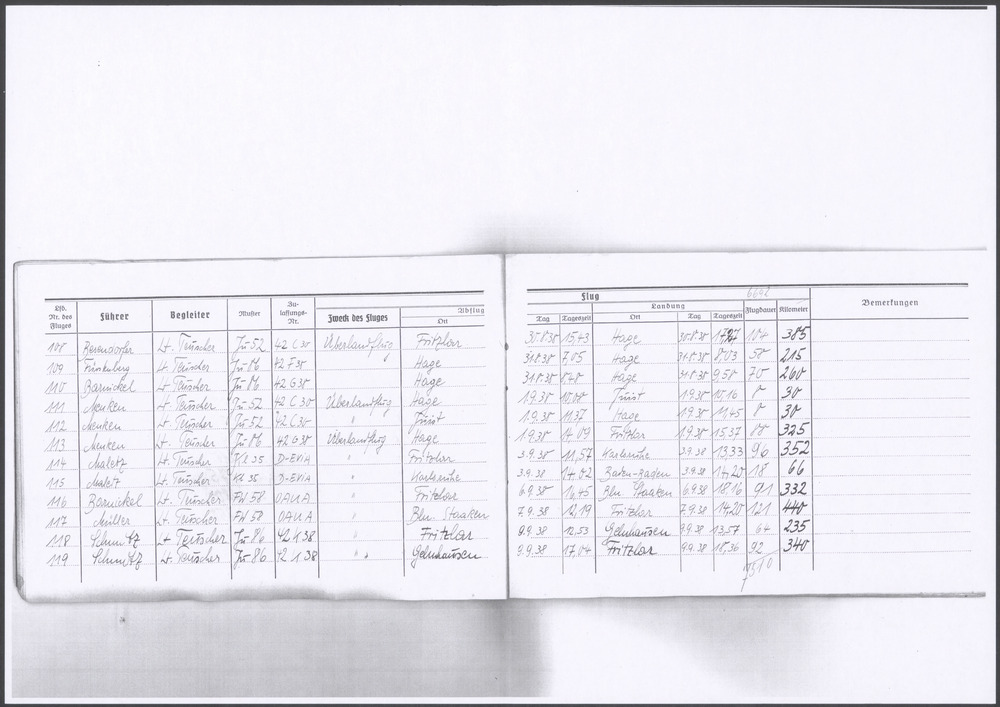 Flug
6692
Lfd. Nr. des Fluges Führer Begleiter Muster Zulassungs-Nr. Zweck des Fluges Abflug Ort Tag Tageszeit Landung Ort Tag Tageszeit Flugdauer Kilometer Bemerkungen
108 Lt. Teuscher Ju 52 42 C 38 Überlandflug Fritzlar 30.8.38 15,43 Hage 30.8.38 104 385
109 Lt. Teuscher Ju 86 42 F 38 Hage 31.8.38 7.05 Hage 31.8.38 8.03 58 215
110 Barnickel Lt. Teuscher Ju 86 42 G 38 Hage 31.8.38 8.40 Hage 31.8.38 9.50 70 260
111 Menken Lt. Teuscher Ju 52 42 C 38 Überlandflug Hage 1.9.38 10.08 Juist 1.9.38 10.16 8 30
112 Menken Lt. Teuscher Ju 52 42 C 38 " Juist 1.9.38 11.37 Hage 1.9.38 11.45 8 30
113 Menken Lt. Teuscher Ju 86 42 G 38 Überlandflug Hage 1.9.38 14.09 Fritzlar 1.9.38 15.37 88 325
114 Maletz Lt. Teuscher Kl 35 D-EVIA " Fritzlar 3.9.38 11,57 Karlsruhe 3.9.38 13.33 96 352
115 Maletz Lt. Teuscher Kl 35 D-EVIA " Karlsruhe 3.9.38 14.02 Baden-Baden 3.9.38 14,20 18 66
116 Barnickel Lt. Teuscher FW 58 OAUA " Fritzlar 6.9.38 16,45 Bln Staaken 6.9.38 18,16 91 332
117 Müller Lt. Teuscher FW 58 OAUA " Bln. Staaken 7.9.38 12.19 Fritzlar 7.9.38 14.20 121 440
118 Schmitz Lt. Teuscher Ju 86 42 1.38 " Fritzlar 9.9.38 12.53 Gelnhausen 9.9.38 13,57 64 235
119 Schmitz Lt. Teuscher Ju 86 42 1.38 " Gelnhausen 9.9.38 17.04 Fritzlar 9.9.38 18,36 92 340
7510